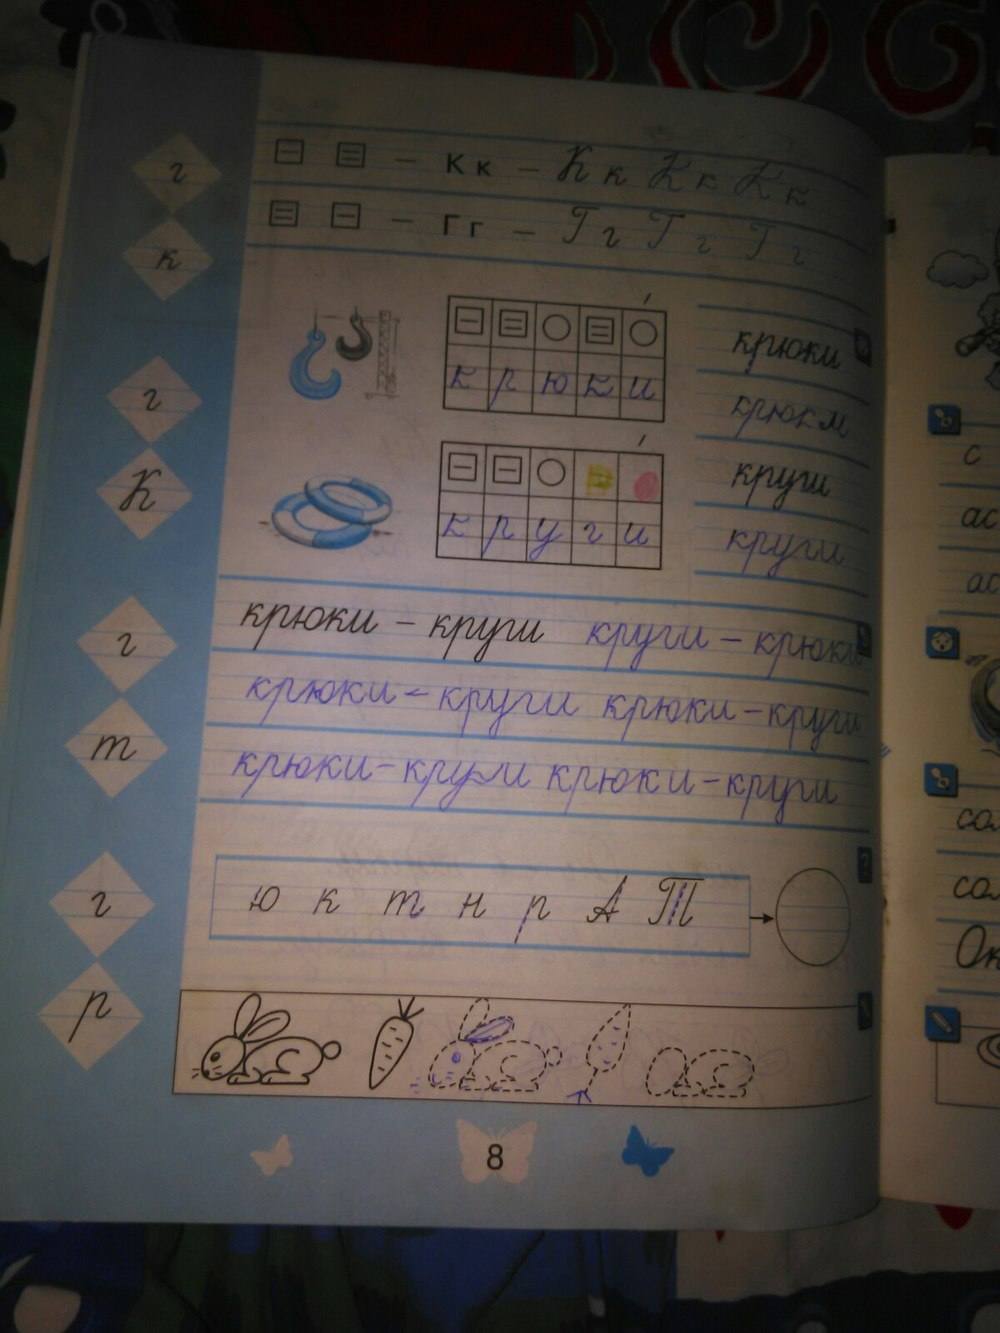 г
к
г
К
г
т
г
р
– Кк – Кк Кк Кк
– Гг – Гг Гг Гг
крюки
крюки
к р ю к и
круги
круги
к р у г и
крюки – круги круги – крюки
крюки – круги крюки – круги
крюки – круги крюки – круги
ю к т н р А Т
8
с
ас
ас
со
со
Ок